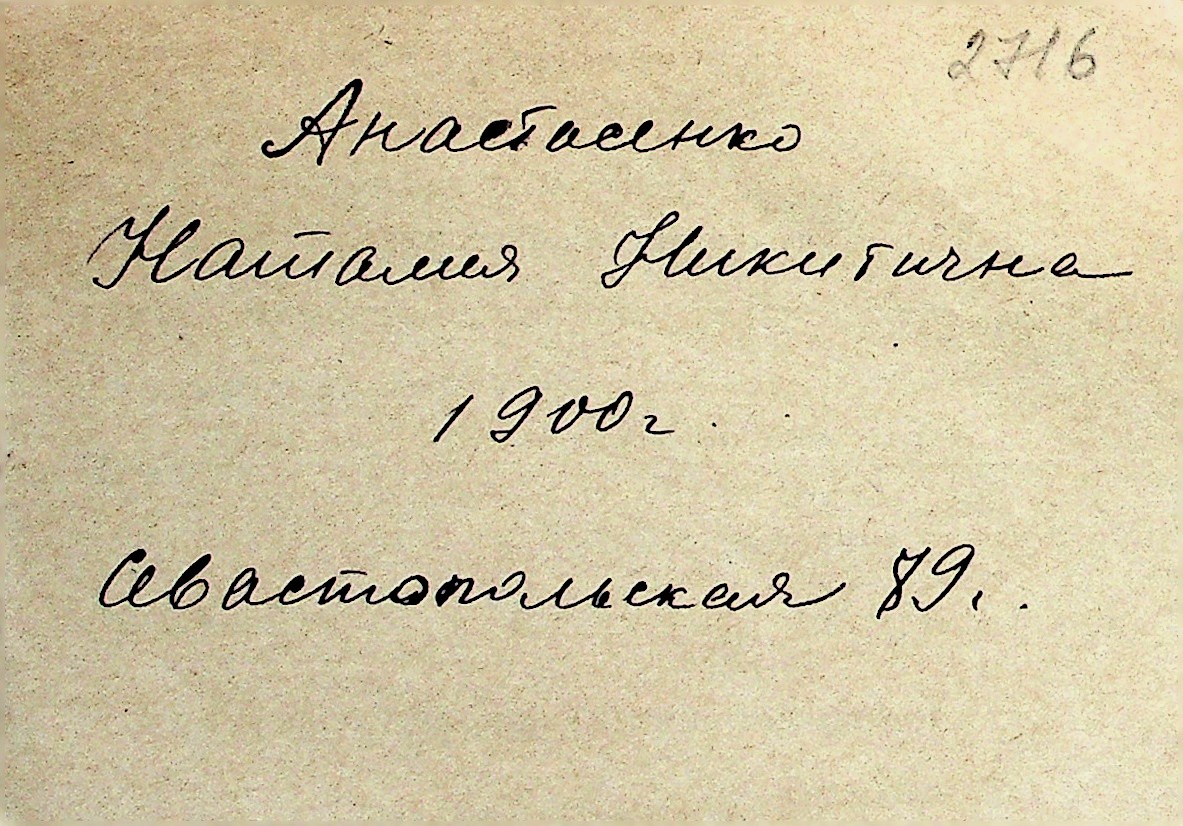 2716
Анастасенко
Наталия Никитична
1900г.
Севастопольская 79.